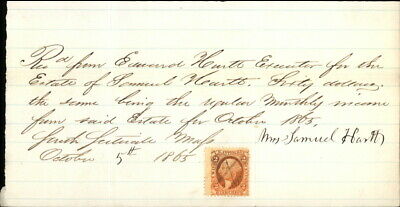 Rec^d from Edward Hartt Executor for the
Estate of Samuel Hartt. Sixty dollars,
the same being the regular Monthly income
from said Estate for October 1865.
Mrs Samuel Hartt
South Scituate Mass
October 5th 1865